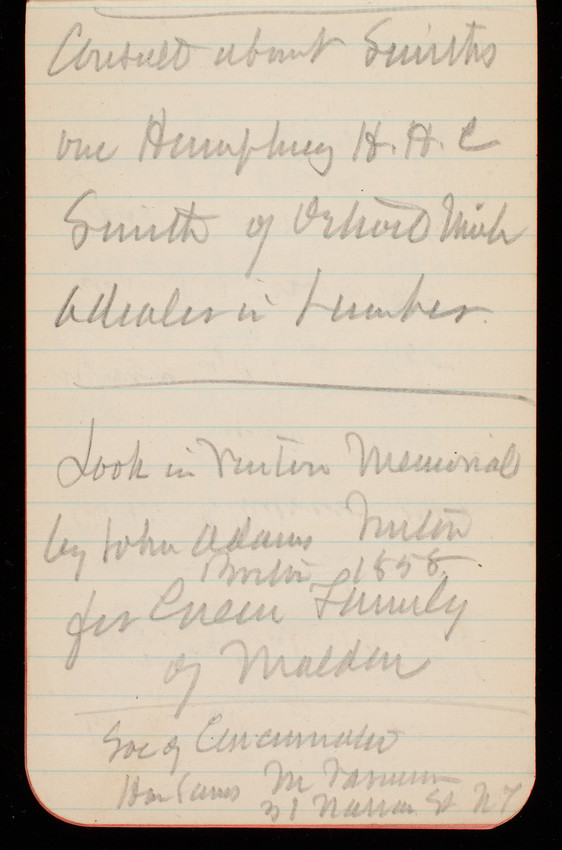 Consult about Smiths
one Humphrey H. H. C
Smith of Detroit Mich
a dealer in Lumber.
Look in Vinton Memorial
by John Adams Vinton
Boston 1858
for Green Family
of Malden
Soc of Cincinnati
Hon James M Varnum
31 Nassau St NY